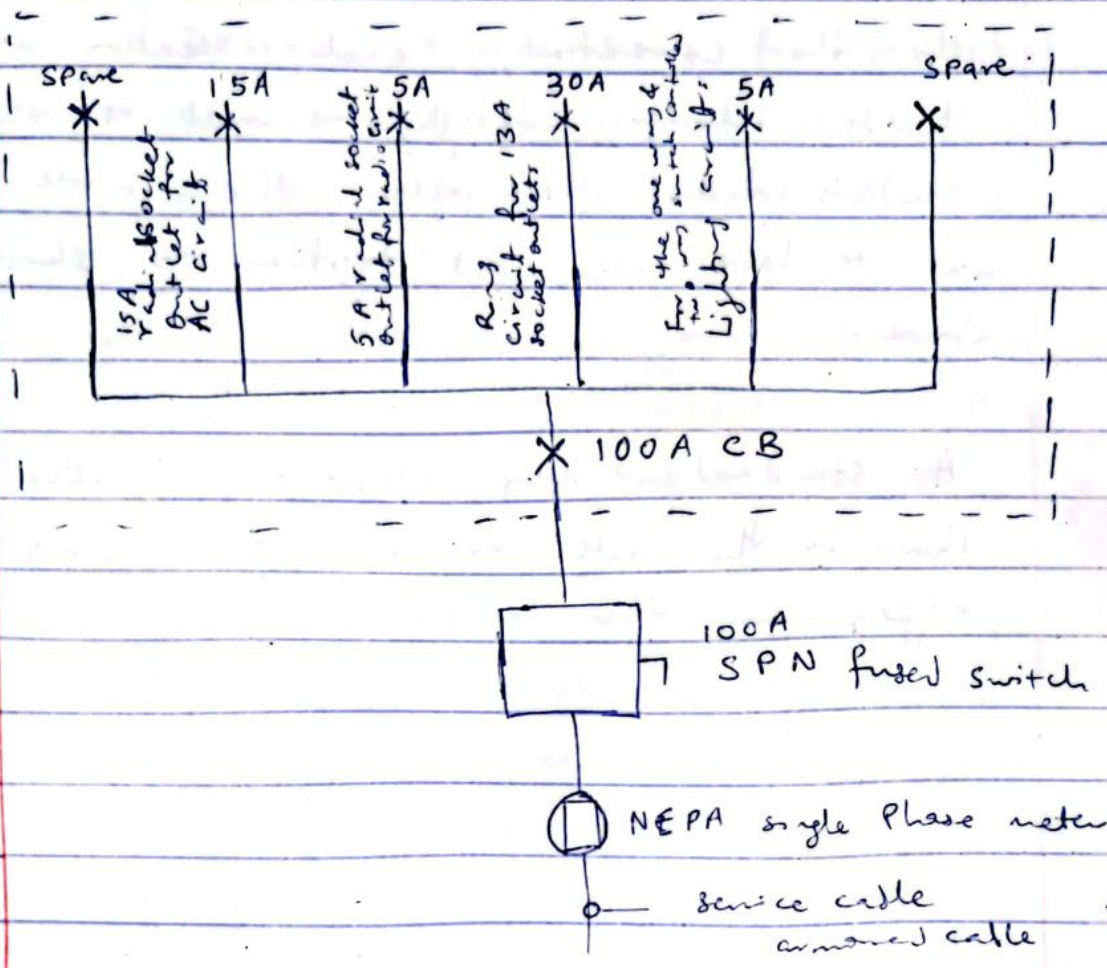 spare
15A
5A
30A
5A
spare
15A
radial socket
outlet for
AC circuit
5A radial socket
outlet for radio circuit
Ring
circuit for 13A
socket outlets
For the one way &
two way switches
Lighting circuits
100A CB
100A
SPN fused switch
NEPA single Phase meter
service cable
armoured cable